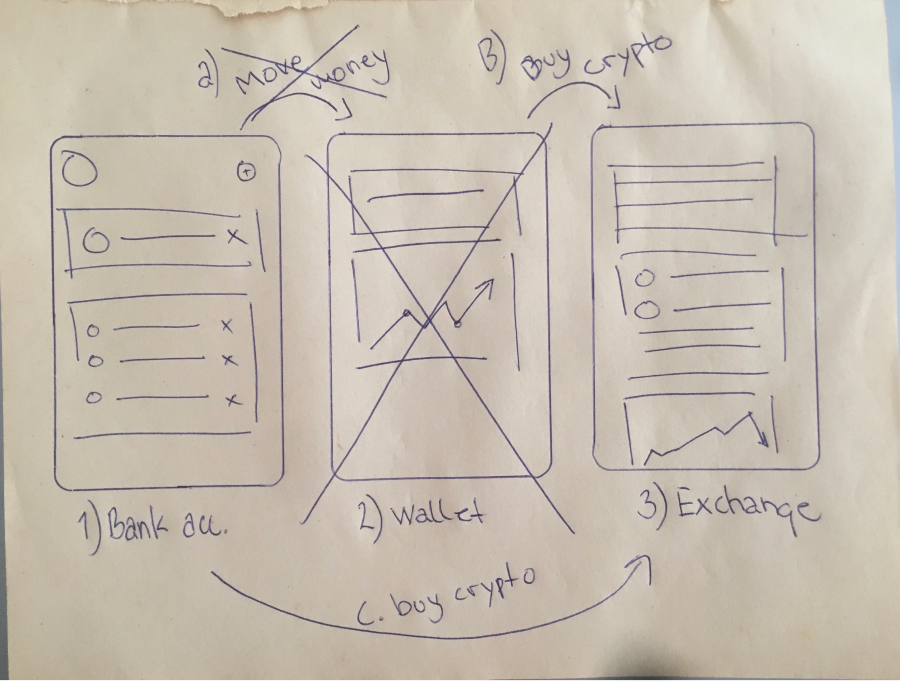 a) Move money
B) Buy crypto
1) Bank acc.
2) Wallet
3) Exchange
C. buy crypto